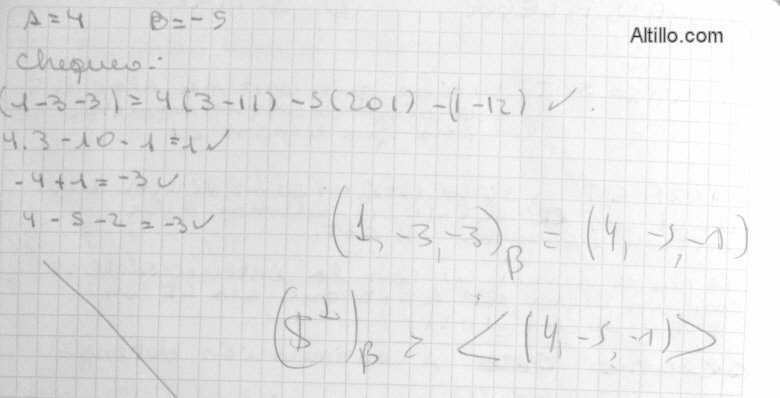 A=4 B=-5
Altillo.com
Chequeo:
(1-3-3) = 4(3-11) -5(201) -(1-12) ✓.
4.3 -10 -1 =1 ✓
-4+1=-3 ✓
4-5-2=-3 ✓
(1,-3,-3)_B = (4,-5,-1)
($^⊥)_B = <(4,-5,-1)>